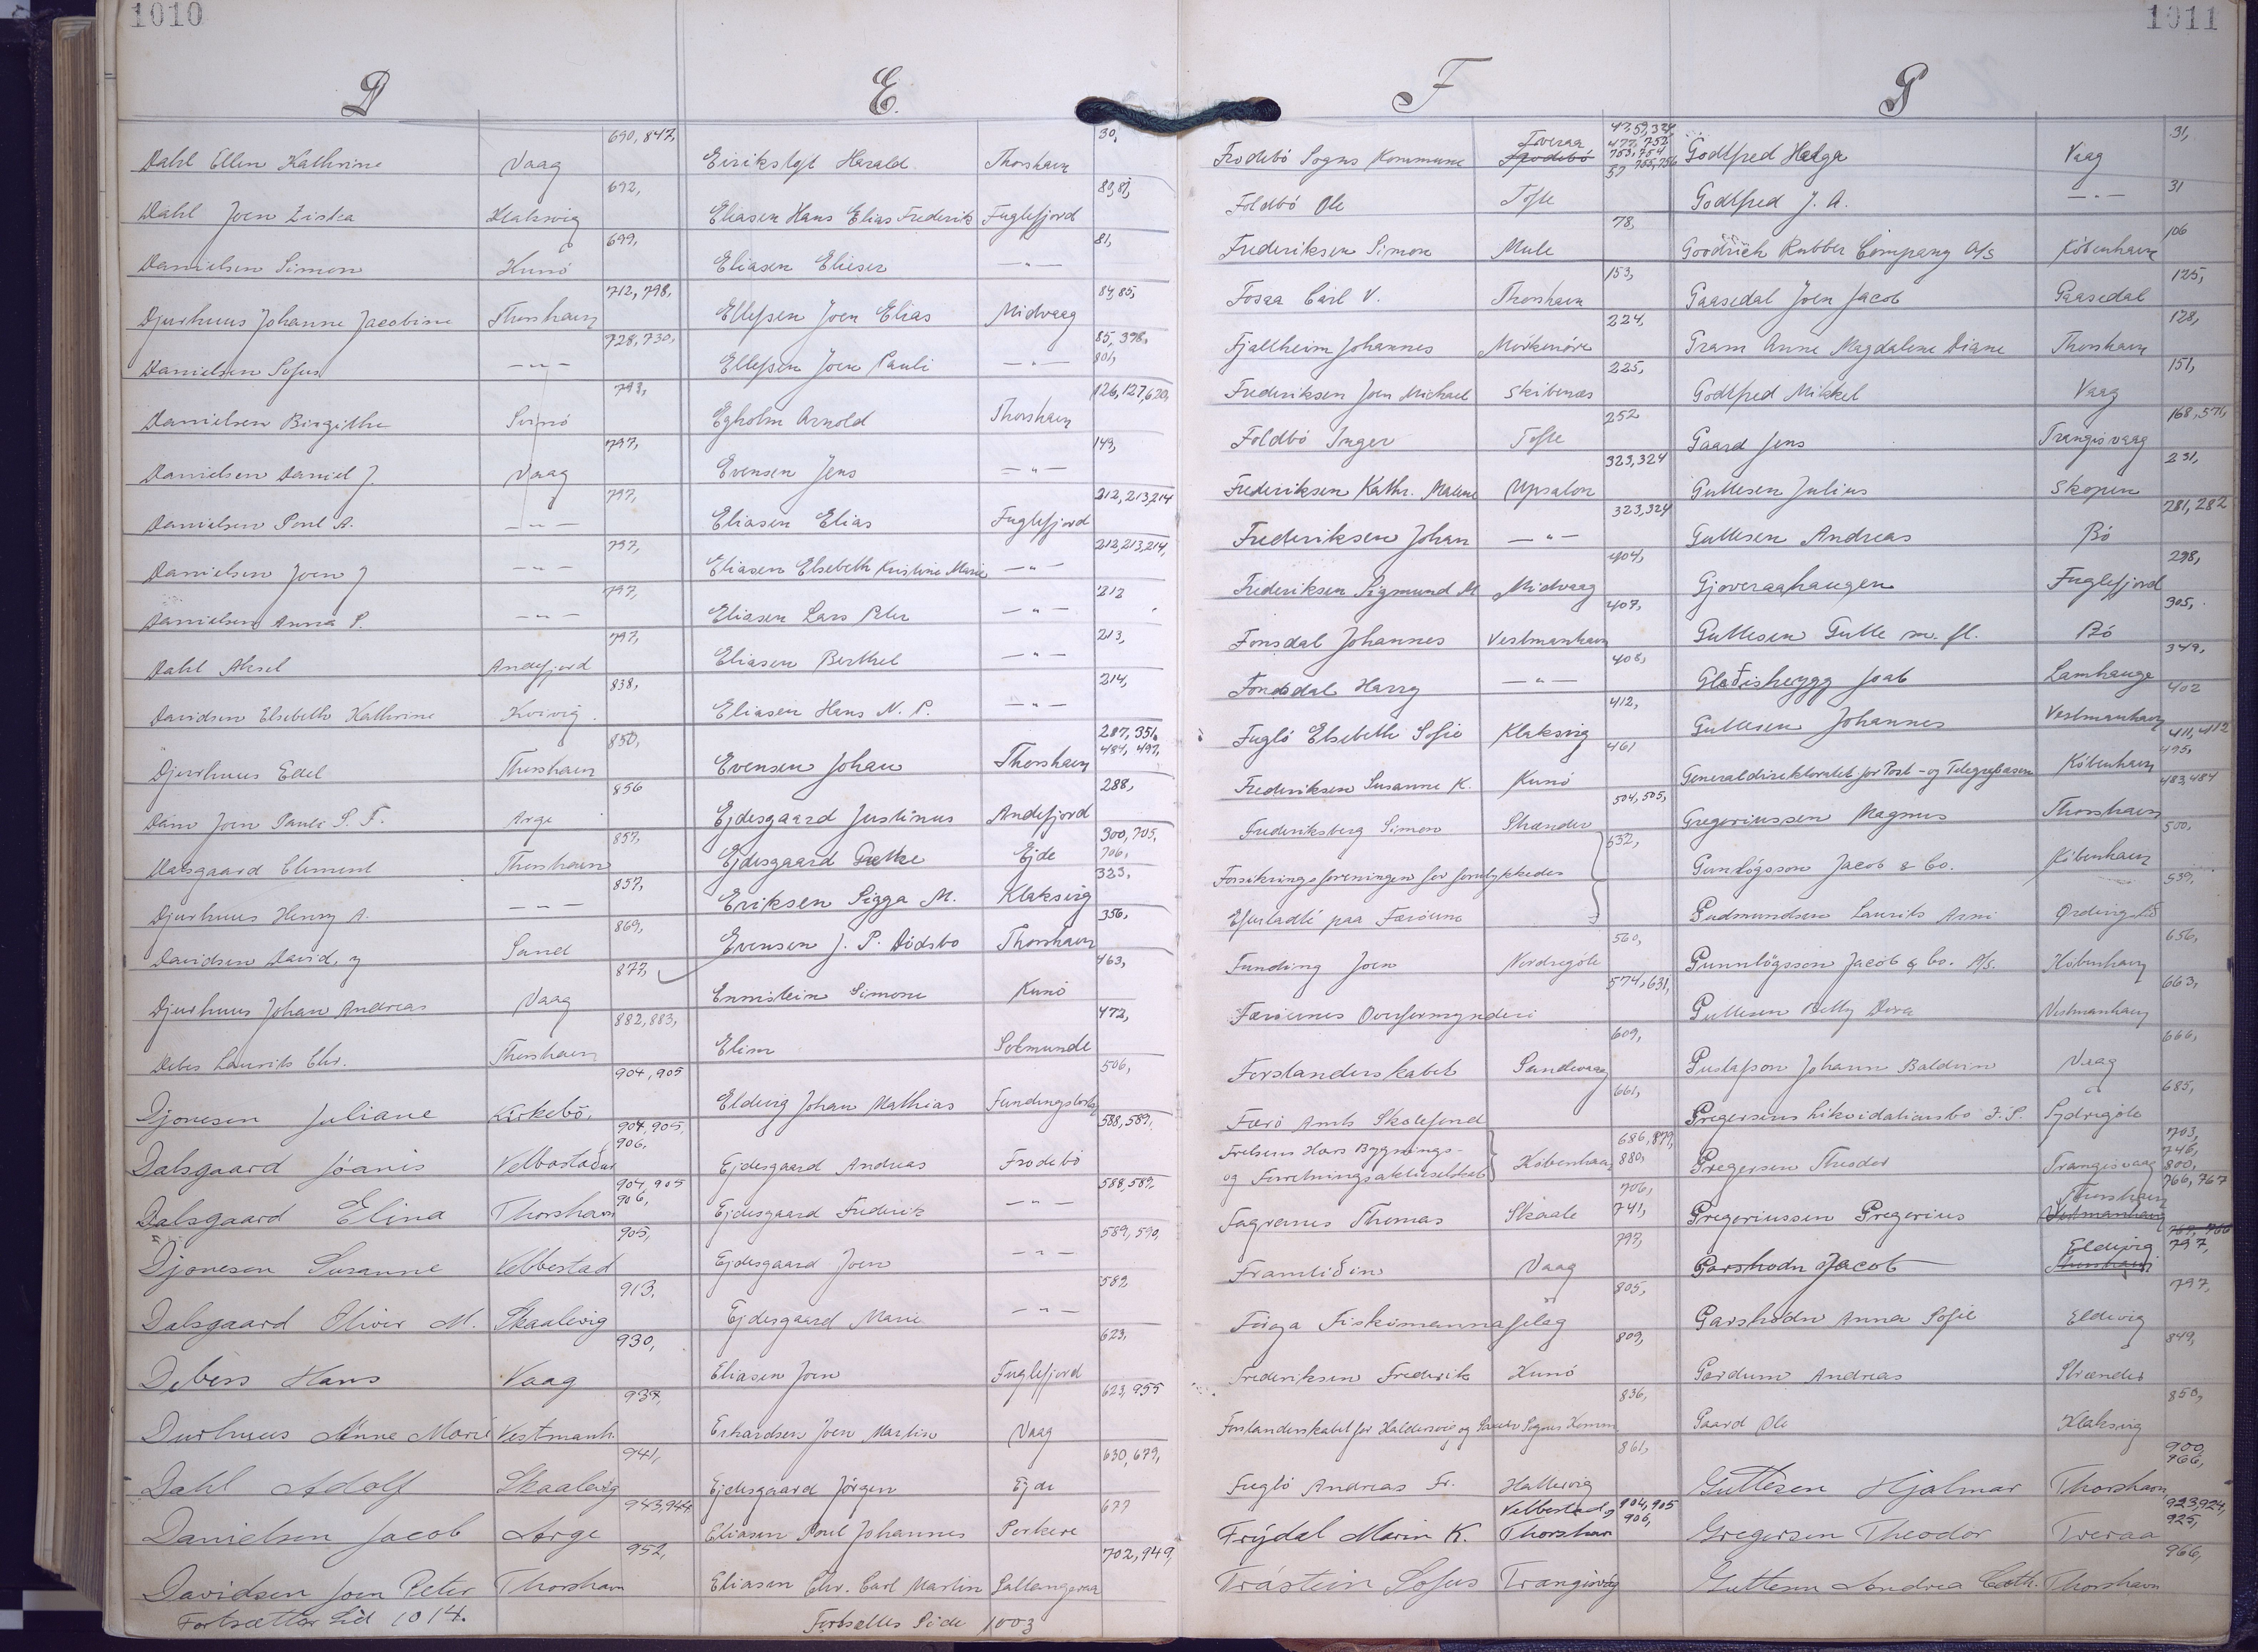 1010
D
Dahl Ellen Kathrine Vaag 690, 847,
Dahl Joen Ziska Klaksvig 692,
Danielsen Simon Kunö 699,
Djurhuus Johanne Jacobine Thorshavn 712, 798,
Danielsen Sofus —„— 728, 730,
Danielsen Birgithe Svinö 793,
Danielsen Daniel J. Vaag 797,
Danielsen Poul A. —„— 797,
Danielsen Joen J —„— 797,
Danielsen Anna P. —„— 797,
Dahl Aksel Andefjord 797,
Davidsen Elsebeth Kathrine Kvivig 838,
Djurhuus Edel Thorshavn 850,
Dam Joen Pauli S. F. Arge 856
Dalsgaard Clement Thorshavn 857,
Djurhuus Henry A. —„— 857,
Davidsen David, y Sand 869,
Djurhuus Johan Andreas Vaag 877,
Debes Laurits Chr. Thorshavn 882, 883,
Djonesen Juliane Kirkebö, 904, 905
Dalsgaard Jóanis Velbastaður 904, 905, 906,
Dalsgaard Elina Thorshavn 904, 905 906,
Djonesen Susanne Velbestad 905,
Dalsgaard Oliver M. Skaalevig 913,
Debess Hans Vaag 930,
Durhuus Anne Marie Vestmanh. 934,
Dahl Adolf Skaalevig 941,
Danielsen Jacob Arge 943, 944
Davidsen Joen Peter Thorshavn 952,
Fortsætter Sid 1014.
E.
Eirikslyst Harald Thorshavn 30,
Eliasen Hans Elias Frederik Fuglefjord 80, 81,
Eliasen Elieser —„— 81,
Ellefsen Joen Elias Midvaag 84, 85,
Ellefsen Joen Pauli —„— 85, 398, 801,
Egholm Arnold Thorshavn 126, 127, 620,
Evensen Jens —„— 143,
Eliasen Elias Fuglefjord 212, 213, 214
Eliasen Elsebeth Kristine Marie —„— 212, 213, 214,
Eliasen Lars Peter —„— 212
Eliasen Berthel —„— 213,
Eliasen Hans N. P. —„— 214,
Evensen Johan Thorshavn 287, 351, 484, 497,
Ejdesgaard Justinus Andefjord 288,
Ejdesgaard Gutte Ejde 300, 705, 706,
Eriksen Sigga M. Klaksvig 323,
Evensen J. P. Dödsbo Thorshavn 356,
Ennistein Simone Kunö 463,
Elim Solmunde 472,
Eldevig Johan Mathias Fundingsbotn 506,
Ejdesgaard Andreas Frodebö 588, 589,
Ejdesgaard Frederik —„— 588, 589,
Ejdesgaard Joen —„— 589, 590,
Ejdesgaard Marie —„— 589
Eliasen Joen Fuglefjord 623,
Erhardsen Joen Martin Vaag 623, 955
Ejdesgaard Jörgen Ejde 630, 679,
Eliasen Poul Johannes Porkere 677
Eliasen Chr. Carl Martin Saltangeraa 702, 949,
Fortsættes Side 1003
1011
F
Frodebö Sogns Kommune Tveraa 47, 53, 324, 477, 752 753, 754 755, 756
Foldbö Ole Tofte 57
Frederiksen Simon Mule 78,
Fosaa Carl V. Thorshavn 153,
Fjallheim Johannes Mörkenöre 224,
Frederiksen Joen Michael Skibenæs 225,
Foldbö Inger Tofte 252
Frederiksen Kathr. Malene Upsalon 323, 324
Frederiksen Johan —„— 323, 324
Frederiksen Sigmund M Midvaag 404,
Fonsdal Johannes Vestmanhavn 407,
Fonsdal Harry —„— 408,
Fuglö Elsebeth Sofie Klaksvig 412,
Frederiksen Susanne K. Kunö 461
Frederiksberg Simon Strænder 504, 505,
Forsikringsforeningen for forulykkedes 532,
Efterladte paa Færöerne
Funding Joen Nordregöte 560,
Færöernes Overformynderi 574, 631,
Forstanderskabet Sandevaag 609,
Færö Amts Skolefond 661,
Frelsens Hærs Bygnings- 686, 879,
og Forretningsaktieselskab København 880,
Fagranes Thomas Skaale 706, 741,
Framtiðin Vaag 797,
Föroya Fiskimannafelag 805,
Frederiksen Frederik Kunö 809,
Forstanderskabet for Haldersvig og Saxen Sogns Komm 836,
Fuglö Andreas Fr. Hattervig 861,
Frýdal Marin K. Velbestad, Thorshavn 904, 905 906,
Trástein Sofus Trangisvåg
G
Godtfred Helga Vaag 31,
Godtfred J. A. —„— 31
Goodrich Rubber Company A/S København 106
Gaasedal Joen Jacob Gaasedal 125,
Gram Anne Magdalene Diane Thorshavn 128,
Godtfred Mikkel Vaag 151,
Gaard Jens Trangisvaag 168, 571,
Guttesen Julius Skopen 231,
Guttesen Andreas Bö 281, 282
Gjoveraahaugen Fuglefjord 298,
Guttesen Gutte m. fl. Bö 305,
Glaðisheygg Joab Lamhauge 349,
Guttesen Johannes Vestmanhavn 402
Generaldirektoratet for Post- og Telegrafvæsen København 411, 412 495,
Gregeriussen Magnus Thorshavn 483, 484
Gunlögsson Jacob & Co. København 500,
Gudmundsen Laurits Arni Ördingvið 539,
Gunnlögsson Jacob & Co. A/S. København 656,
Guttesen Betty Dora Vestmanhavn 663,
Gustafson Johann Baldvin Vaag 666,
Gregersens Likvidationsbo F. S. Sydregöte 685,
Gregersen Theodor Trangisvaag 703, 746, 800,
Gregeriussen Gregerius Thorshavn 766, 767
Garshodn Jacob Eldevig 797,
Garshodn Anna Sofie Eldevig 797,
Gardum Andreas Strænder 849,
Gaard Ole Klaksvig 850,
Guttesen Hjalmar Thorshavn 900, 966,
Gregersen Theodor Tveraa 923, 924, 925,
Guttesen Andrea Cath. Thorshavn 966,